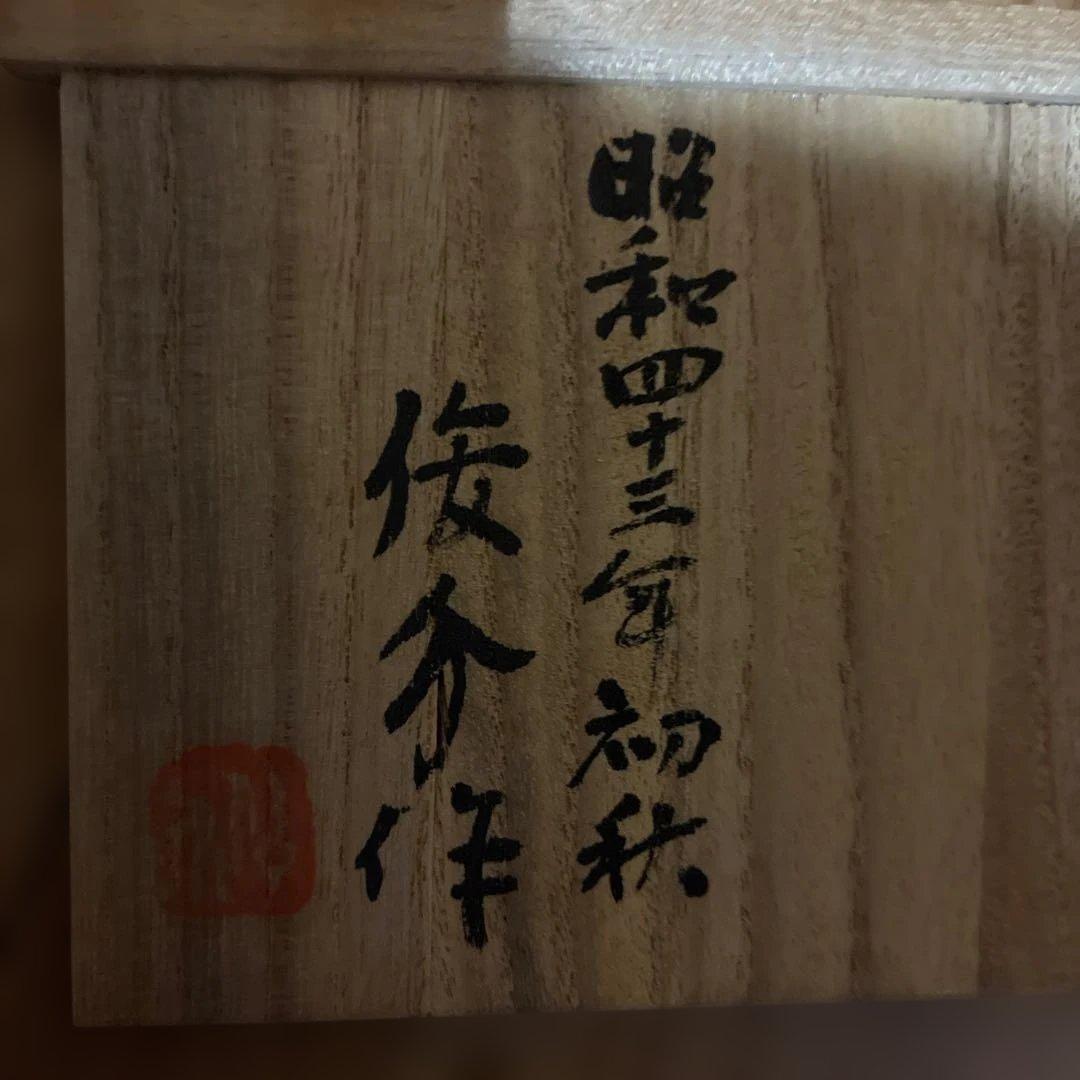 昭和四十三年 初秋
俊介作